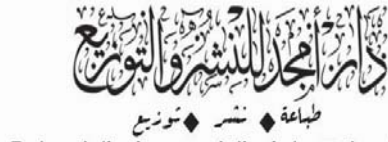 دار أمجد للنشر والتوزيع
طباعة ◆ نشر ◆ توزيع